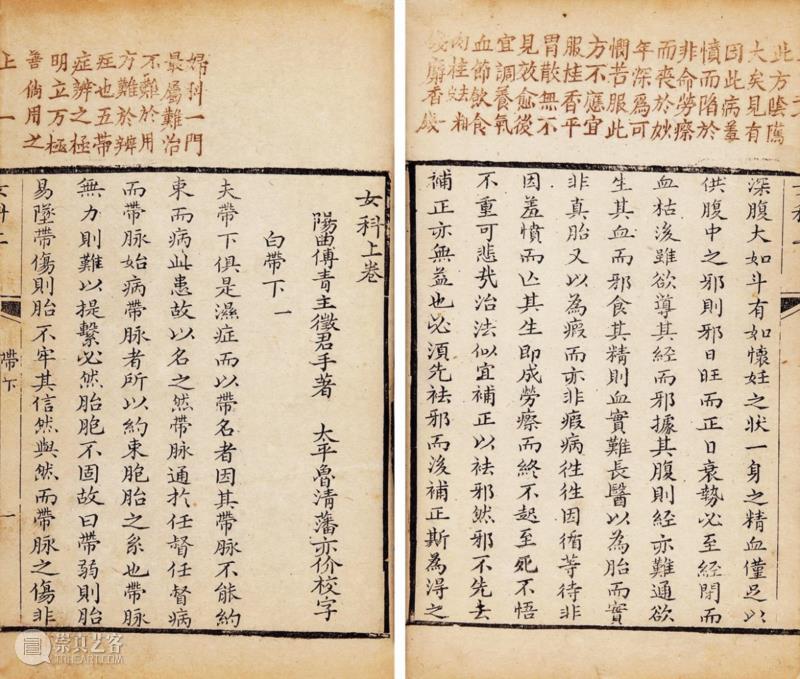 婦科一門
最屬難治
不難於用
方難於辨
症也五帶
症辨之極
明立方極
善倘用之
上一
女科上卷
陽曲傅青主徵君手著 太平魯清藩亦价校字
白帶下一
夫帶下俱是濕症而以帶名者因其帶脉不能約
束而病此患故以名之然帶脉通於任督任督病
而帶脉始病帶脉者所以約束胞胎之系也帶脉
無力則難以提繫必然胎胞不固故曰帶弱則胎
易墜帶傷則胎不牢其信然與然而帶脉之傷非
帶下 一
此方陰騭
大矣見有
因此病羞
憤而陷於
非命勞瘵
而喪於妙
年深為可
憫苦服此
方不應宜
服桂香平
胃散無不
見效愈後
宜調養氣
血節飲食
肉桂
麝香
深腹大如斗有如懷妊之狀一身之精血僅足以
供腹中之邪則邪日旺而正日衰勢必至經閉而
血枯後雖欲導其經而邪據其腹則經亦難通欲
生其血而邪食其精則血實難長醫以為胎而實
非真胎又以為瘕而亦非瘕病徃徃因循等待非
因羞憤而亡其生即成勞瘵而終不起至死不悟
不重可悲㢤治法似宜補正以祛邪然邪不先去
補正亦無益也必須先祛邪而後補正斯為淂之
崇真艺客
TRUEART.COM